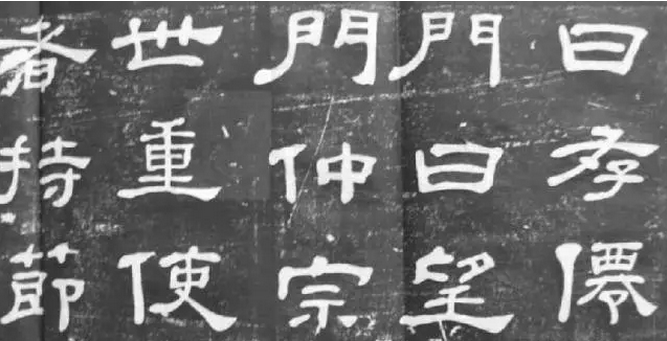 曰存僊
門曰望
門仲宗
世重使
者持節